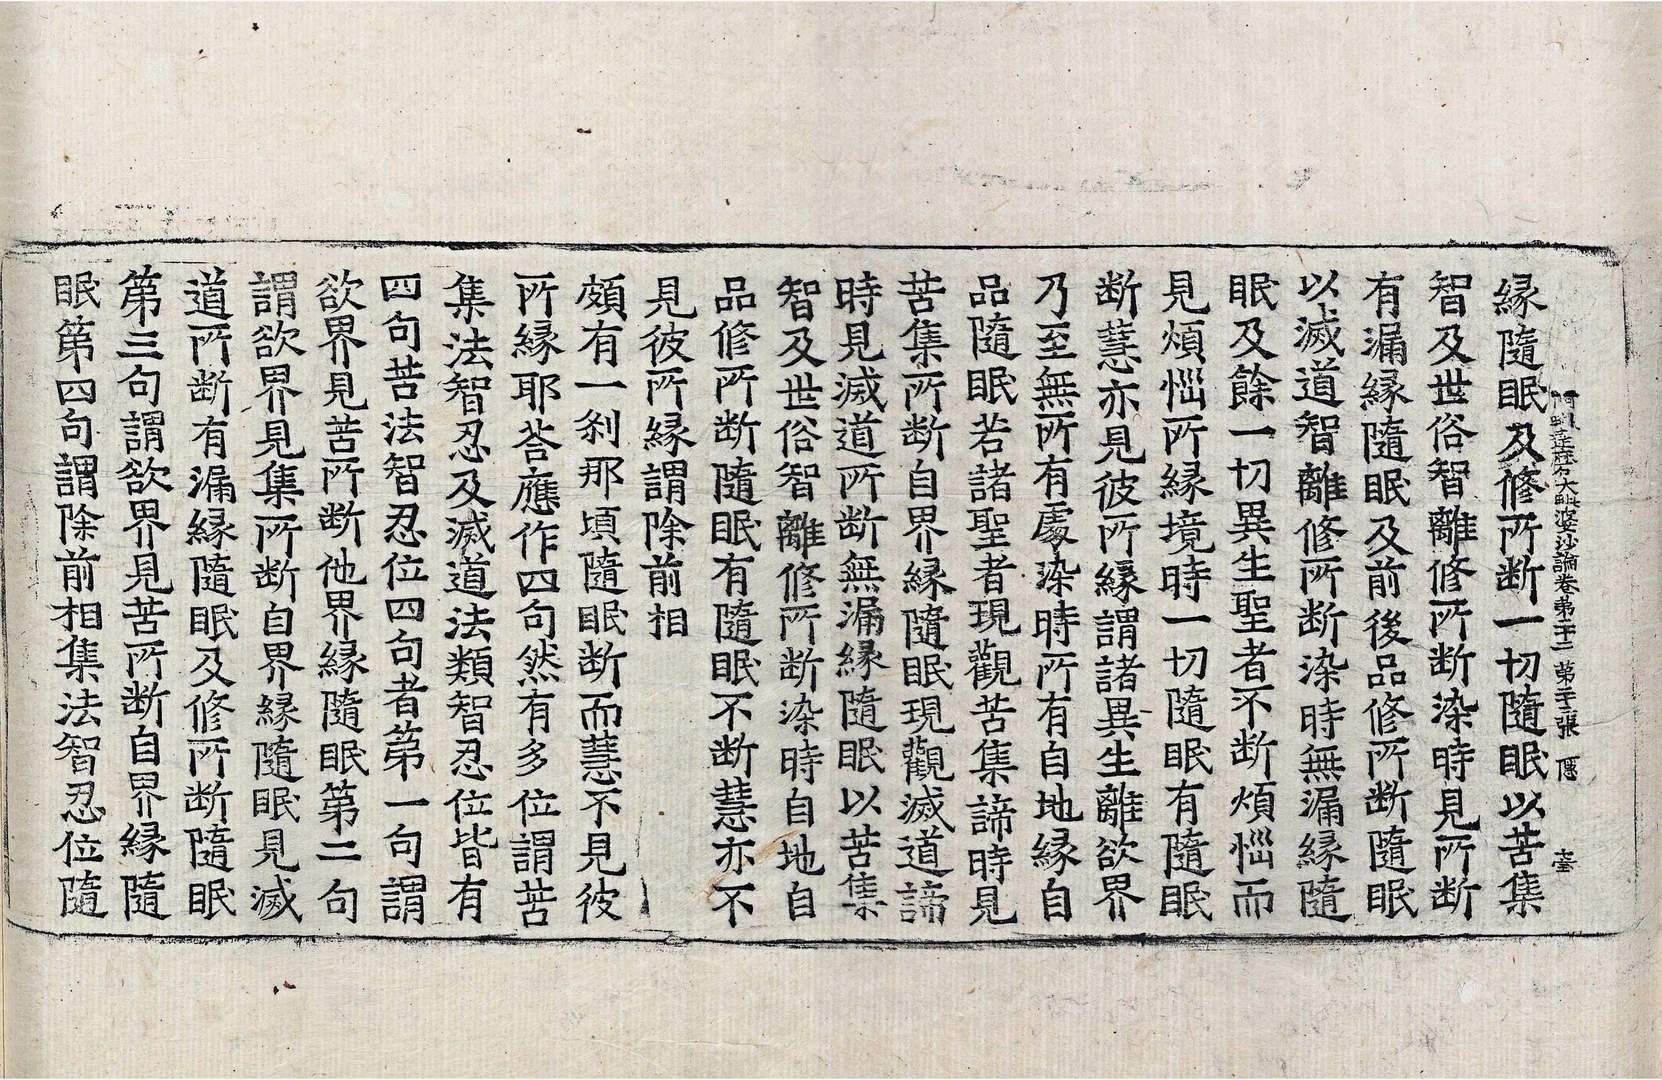 阿毗達磨大毗婆沙論卷第二十二 第二十三張 匿 臺
緣隨眠及修所断一切隨眠以苦集
智及世俗智離修所断染時見所断
有漏緣隨眠及前後品修所断隨眠
以滅道智離修所断染時無漏緣隨
眠及餘一切異生聖者不断煩惱而
見煩惱所緣境時一切隨眠有隨眠
断慧亦見彼所緣謂諸異生離欲界
乃至無所有處染時所有自地緣自
品隨眠若諸聖者現觀苦集諦時見
苦集所断自界緣隨眠現觀滅道諦
時見滅道所断無漏緣隨眠以苦集
智及世俗智離修所断染時自地自
品修所断隨眠有隨眠不断慧亦不
見彼所緣謂除前相
頗有一刹那頃隨眠断而慧不見彼
所緣耶荅應作四句然有多位謂苦
集法智忍及滅道法類智忍位皆有
四句苦法智忍位四句者第一句謂
欲界見苦所断他界緣隨眠第二句
謂欲界見集所断自界緣隨眠見滅
道所断有漏緣隨眠及修所断隨眠
第三句謂欲界見苦所断自界緣隨
眠第四句謂除前相集法智忍位隨